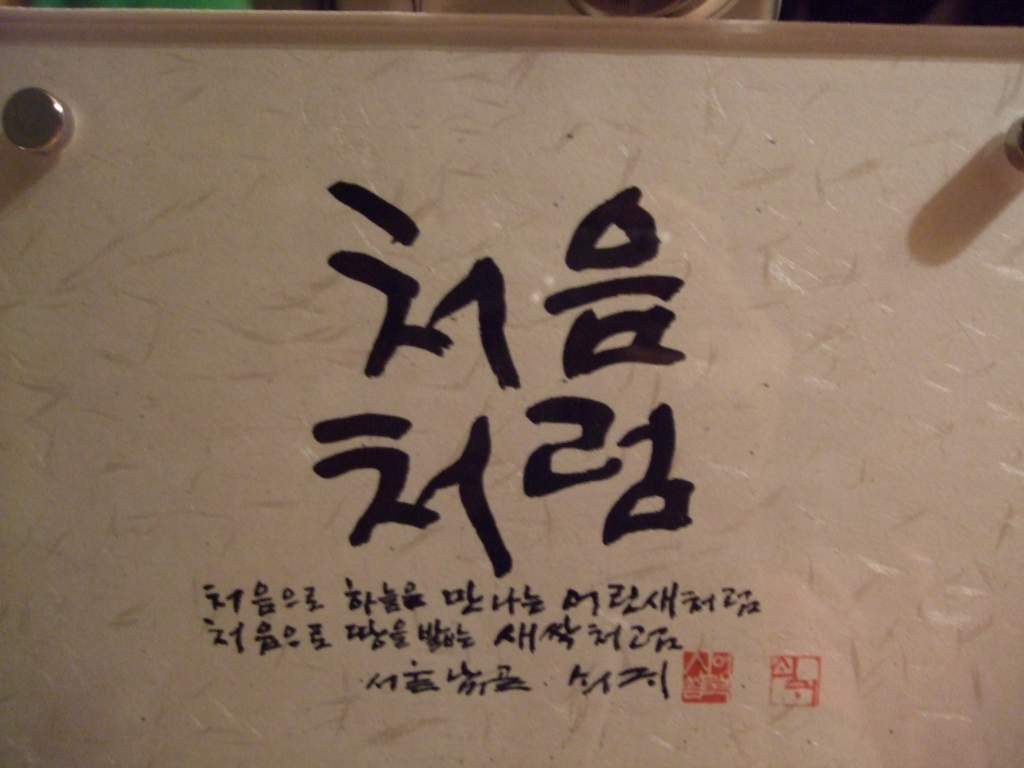 처음
처럼
처음으로 하늘을 만나는 어린새처럼
처음으로 땅을 밟는 새싹처럼